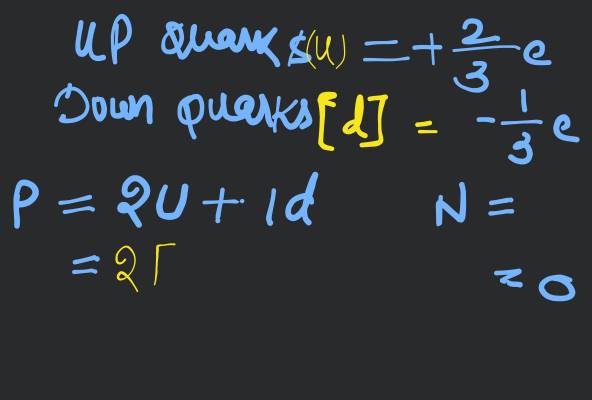 UP quarks (u) = + 2/3 e
Down quarks [d] = - 1/3 e
P = 2U + 1d
= 2[
N =
= 0